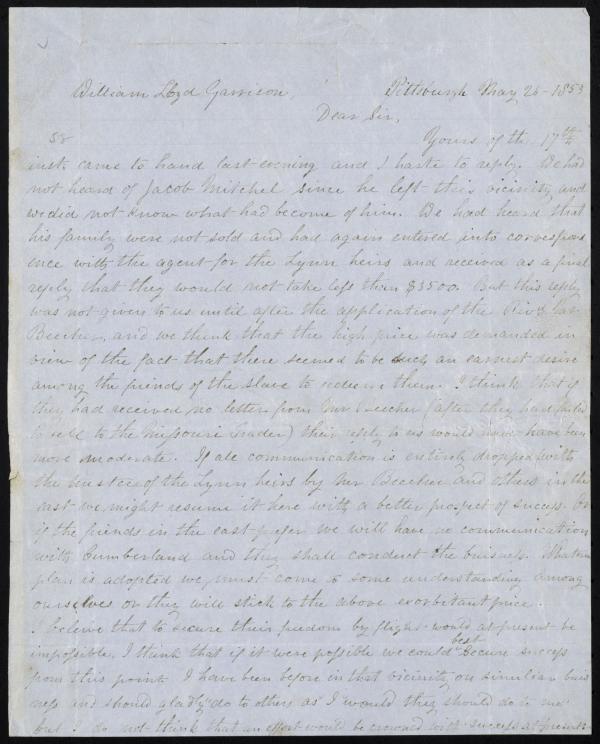 William Lloyd Garrison, Pittsburgh May 26-1853
Dear Sir,
58 Yours of the 17th
inst. came to hand last evening and I haste to reply. We had
not heard of Jacob Mitchel since he left this vicinity and
we did not know what had become of him. We had heard that
his family were not sold and had again entered into correspond
ence with the agent for the Lynn heirs and received as a final
reply that they would not take less than $3500. But this reply
was not given to us until after the application of the
Beecher, and we think that the high price was demanded in
view of the fact that there seemed to be such an earnest desire
among the friends of the slave to redeem them. I think that if
they had received no letter from Mr Beecher (after they had failed
to sell to the Missouri Trader) their reply to us would have been
more moderate. If all communication is entirely dropped with
the trustee of the Lynn heirs by Mr Beecher and others in the
east we might resume it here with a better prospect of success. Or
if the friends in the east prefer we will have no communication
with Cumberland and they shall conduct the buisness. Whatever
plan is adopted we must come to some understanding among
ourselves or they will stick to the above exorbitant price.
I beleive that to secure their freedom by flight would at present be
impossible. I think that if it were possible we could best secure success
from this point. I have been before in that vicinity on similiar buis
ness and should gladly do to others as I would they should do to me
but I do not think that an effort would be crowned with success at present.